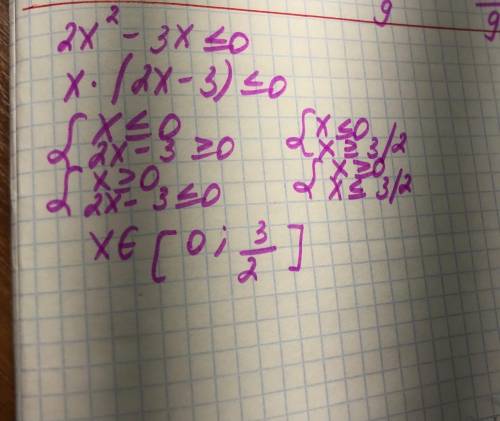 9
9
2x² - 3x ≤ 0
x · (2x - 3) ≤ 0
{ x ≤ 0
2x - 3 ≥ 0
{ x ≥ 0
2x - 3 ≤ 0
{ x ≤ 0
x ≥ 3/2
{ x ≥ 0
x ≤ 3/2
x ∈ [ 0 ; 3/2 ]